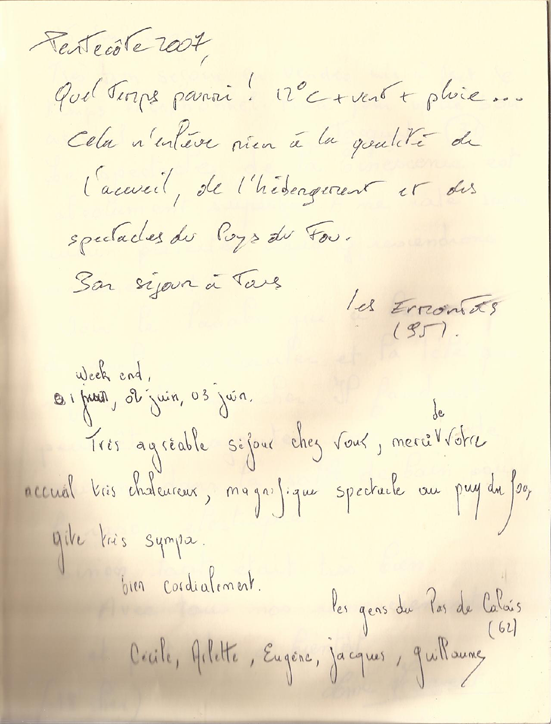 Pentecôte 2007,
Quel temps pourri ! 12°C + vent + pluie ...
Cela n'enlève rien à la qualité de
l'accueil, de l'hébergement et des
spectacles du Puy du Fou.
Bon séjour à Tous
les
(95).
Week end,
01 juin, 02 juin, 03 juin.
de
Très agréable séjour chez vous, merci votre
accueil très chaleureux, magnifique spectacle au puy du fou,
gîte très sympa.
bien cordialement.
les gens du Pas de Calais
(62)
Cécile, Arlette, Eugène, jacques, guillaume